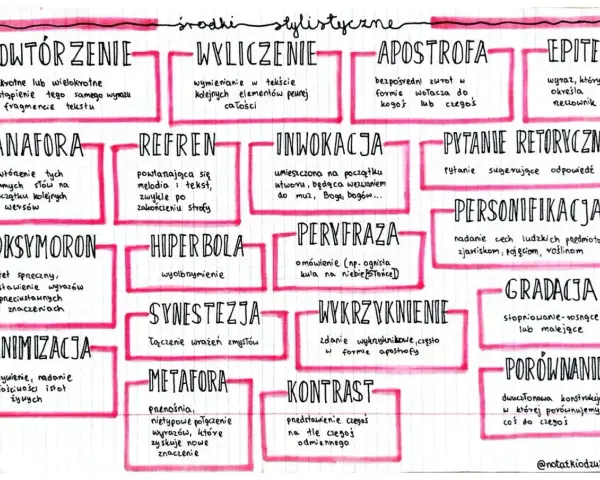 środki stylistyczne
OWTÓRZENIE
krotne lub wielokrotne
stąpienie tego samego wyrazu
fragmencie tekstu
WYLICZENIE
wymienianie w tekście
kolejnych elementów pewnej
całości
APOSTROFA
bezpośredni zwrot w
formie wołacza do
kogoś lub czegoś
EPITE
wyraz, który
określa
rzeczownik
ANAFORA
tórzenie tych
mych słów na
czątku kolejnych
wersów
REFREN
powtarzająca się
melodia i tekst,
zwykle po
zakończeniu strofy
INWOKACJA
umieszczona na początku
utworu, będąca wezwaniem
do muz, Boga, bogów...
PYTANIE RETORYCZN
pytanie sugerujące odpowiedź
OKSYMORON
tet sprzeczny,
stawienie wyrazów
przeciwstawnych
znaczeniach
HIPERBOLA
wyolbrzymienie
PERYFRAZA
omówienie (np. ognista
kula na niebie[Słońce])
PERSONIFIKACJA
nadanie cech ludzkich przedmioto
zjawiskom, pojęciom, roślinom
SYNESTEZJA
łączenie wrażeń zmysłów
WYKRZYKNIENIE
zdanie wykrzyknikowe, często
w formie apostrofy
GRADACJA
stopniowanie-rosnące
lub malejące
NIMIZACJA
ywienie, nadanie
ściwości istot
żywych
METAFORA
przenośnia,
nietypowe połączenie
wyrazów, które
zyskuje nowe
znaczenie
KONTRAST
przedstawienie czegoś
na tle czegoś
odmiennego
PORÓWNANI
dwuczłonowa konstrukcj
w której porównujemy
coś do czegoś
@notatkiodzu